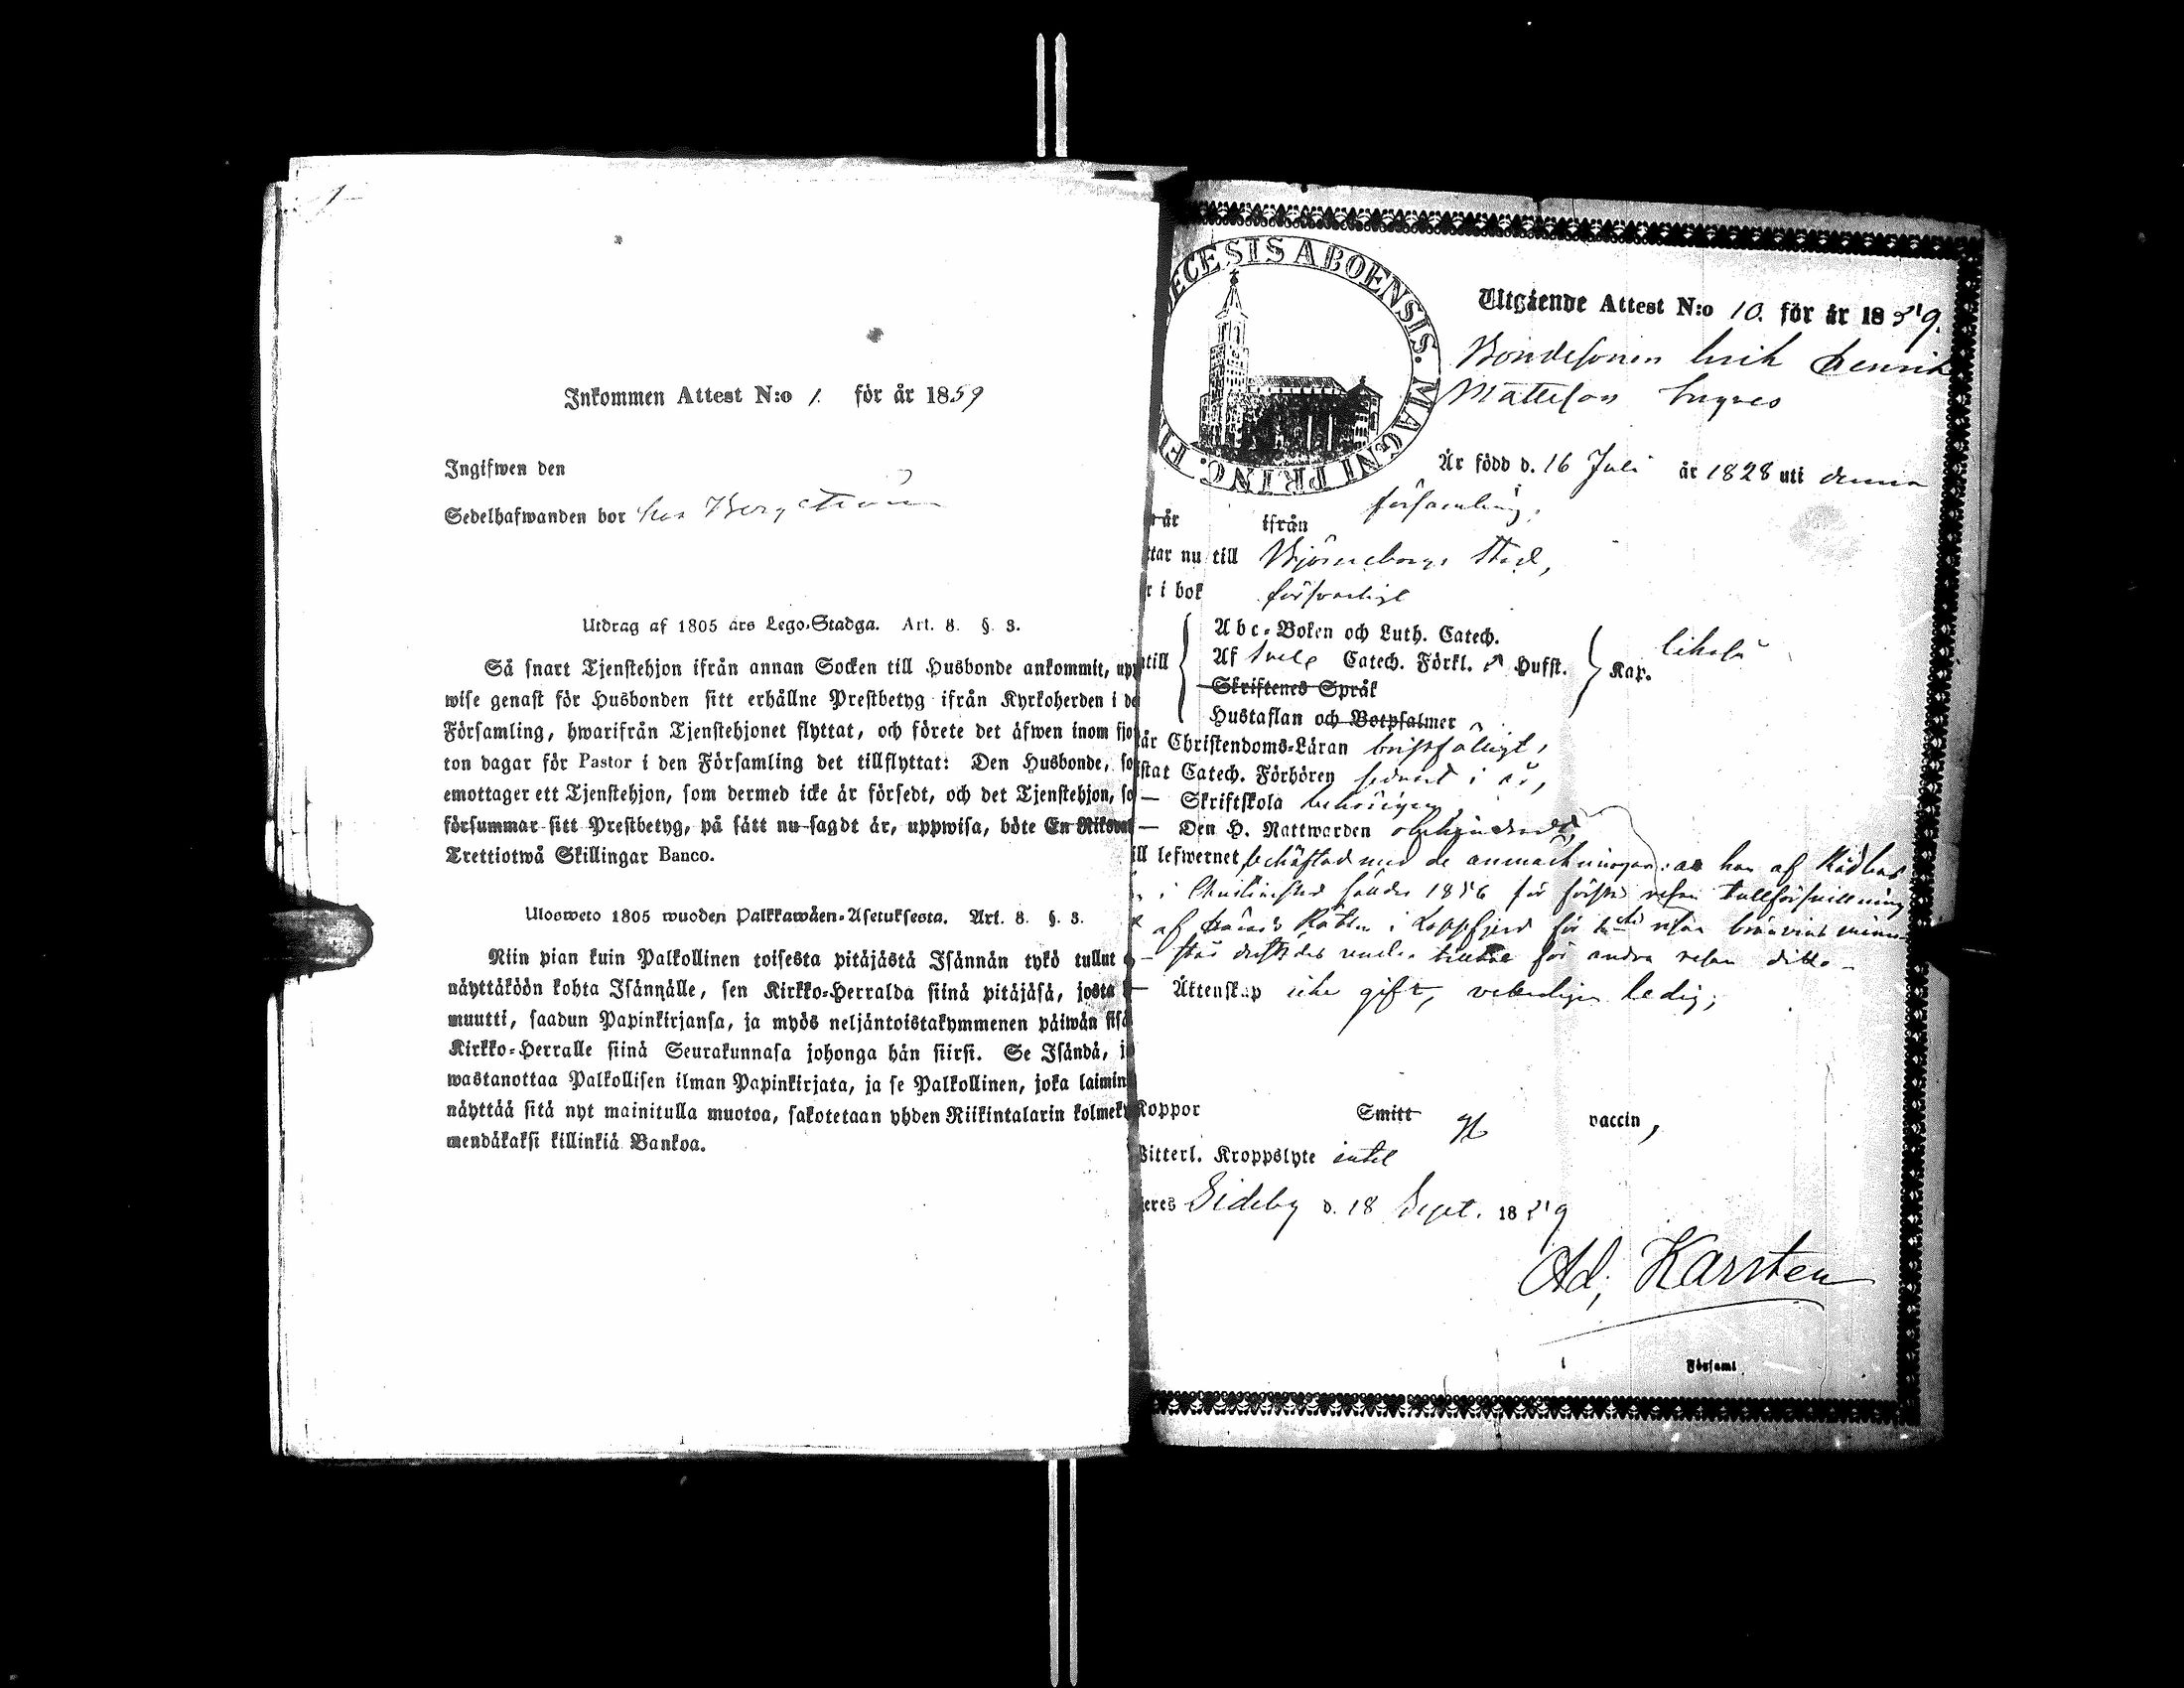 1
Inkommen Attest N:o 1. för år 1859
Ingifwen den
Sedelhafwanden bor hos Bergström
Utdrag af 1805 års Lego-Stadga. Art. 8. §. 3.
Så snart Tjenstehjon ifrån annan Socken till Husbonde ankommit, upp
wise genast för Husbonden sitt erhållne Prestbetyg ifrån Kyrkoherden i de
Församling, hwarifrån Tjenstehjonet flyttat, och förete det äfwen inom fjo
ton dagar för Pastor i den Församling det tillflyttat: Den Husbonde, so
emottager ett Tjenstehjon, som dermed icke är försedt, och det Tjenstehjon, so
försummar sitt Prestbetyg, på sätt nu sagdt är, uppwisa, böte En Riksd
Trettiotwå Skillingar Banco.
Ulosweto 1805 wuoden Palkkawäen-Asetuksesta. Art. 8. §. 3.
Niin pian kuin Palkollinen toisesta pitäjästä Isännän tykö tullut
näyttäköön kohta Isännälle, sen Kirkko-Herralda siinä pitäjäsä, josta
muutti, saadun Papinkirjansa, ja myös neljäntoistakymmenen päiwän sisä
Kirkko-Herralle siinä Seurakunnasa johonga hän siirsi. Se Isändä, j
wastanottaa Palkollisen ilman Papinkirjata, ja se Palkollinen, joka laimin
näyttää sitä nyt mainitulla muotoa, sakotetaan yhden Riikintalarin kolmeky
mendäkaksi killinkiä Bankoa.
ECESIS ABOENSIS. MAGNI PRINC. FI
Utgående Attest N:o 10. för år 1859.
Bondesonen Erik Henrik
Mattsson Ingves
Är född d. 16 Juli år 1828 uti denna
församling.
år ifrån
ttar nu till Björneborgs Stad,
r i bok försvarligt
till
Abc-Boken och Luth. Catech.
Af Svebe Catech. Förkl. Hufst.
Kap. likaså
Skriftenes Språk
Hustaflan och Botpsalmer
år Christendoms-Läran bristfälligt,
istat Catech. Förhören senast i år,
— Skriftskola behörigen,
— Den H. Nattwarden obehindradt,
ill lefwernet behäftad med de anmärkningar: att han af Rådhus
i Christinestad 1856 för första resan tullförsnillning
af Härads Rätten i Lappfjerd för resan bränvins
för andra resan ditto —
— Äktenskap icke gift, ledig;
Koppor Smitt vaccin,
Witterl. Kroppslyte intet
eres Sideby d. 18 Sept. 1859
Ad, Karsten
Församl